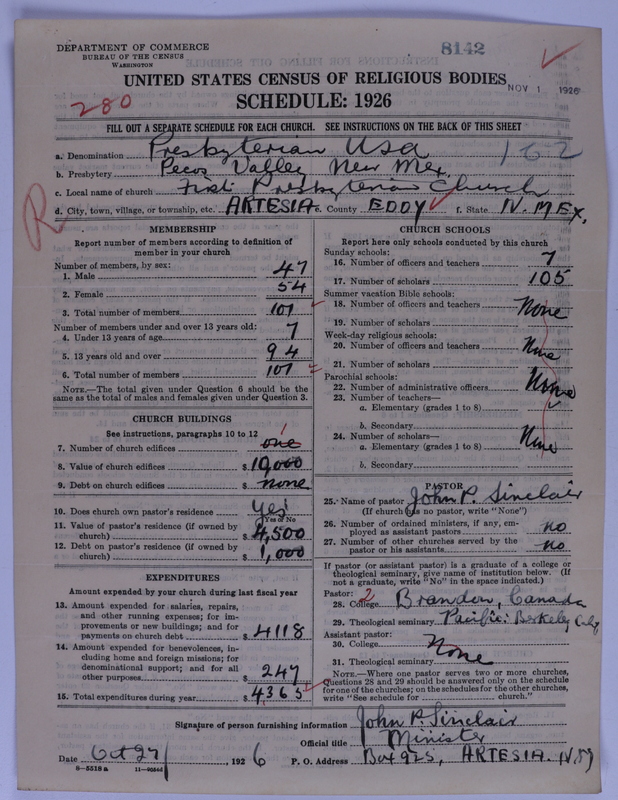 8142
DEPARTMENT OF COMMERCE
BUREAU OF THE CENSUS
WASHINGTON
UNITED STATES CENSUS OF RELIGIOUS BODIES
NOV 1 1926
280
SCHEDULE: 1926
FILL OUT A SEPARATE SCHEDULE FOR EACH CHURCH. SEE INSTRUCTIONS ON THE BACK OF THIS SHEET
a. Denomination Presbyterian Usa 162
b. Presbytery Pecos Valley New Mex.
c. Local name of church First Presbyterian Church
d. City, town, village, or township, etc. ARTESIA e. County EDDY f. State N. MEX.
R
MEMBERSHIP
Report number of members according to definition of
member in your church
Number of members, by sex:
1. Male 47
2. Female 54
3. Total number of members 101
Number of members under and over 13 years old:
4. Under 13 years of age 7
5. 13 years old and over 94
6. Total number of members 101
NOTE.—The total given under Question 6 should be
same as the total of males and females given under Question 3.
CHURCH BUILDINGS
See instructions, paragraphs 10 to 12
7. Number of church edifices one 1
8. Value of church edifices $ 10,000
9. Debt on church edifices $ none
10. Does church own pastor's residence Yes
Yes or No
11. Value of pastor's residence (if owned by
church) $ 4,500
12. Debt on pastor's residence (if owned by
church) $ 1,000
EXPENDITURES
Amount expended by your church during last fiscal year
13. Amount expended for salaries, repairs,
and other running expenses; for im-
provements or new buildings; and for
payments on church debt $ 4118
14. Amount expended for benevolences, in-
cluding home and foreign missions; for
denominational support; and for all
other purposes $ 247
15. Total expenditures during year $ 4365
CHURCH SCHOOLS
Report here only schools conducted by this church
Sunday schools:
16. Number of officers and teachers 7
17. Number of scholars 105
Summer vacation Bible schools:
18. Number of officers and teachers None
19. Number of scholars
Week-day religious schools:
20. Number of officers and teachers None
21. Number of scholars
Parochial schools:
22. Number of administrative officers None
23. Number of teachers—
a. Elementary (grades 1 to 8)
b. Secondary
24. Number of scholars—
a. Elementary (grades 1 to 8) None
b. Secondary
PASTOR
25. Name of pastor John P. Sinclair
(If church has no pastor, write "None")
26. Number of ordained ministers, if any, em-
ployed as assistant pastors no
27. Number of other churches served by the
pastor or his assistants no
If pastor (or assistant pastor) is a graduate of a college or
theological seminary, give name of institution below. (If
not a graduate, write "No" in the space indicated.)
Pastor: 2
28. College Brandon, Canada
29. Theological seminary Pacific: Berkeley Calif
Assistant pastor:
30. College None
31. Theological seminary
NOTE.—Where one pastor serves two or more churches,
Questions 28 and 29 should be answered only on the schedule
for one of the churches; on the schedules for the other churches,
write "See schedule for church."
Signature of person furnishing information John P. Sinclair
Official title Minister
Date Oct 27, 1926 P. O. Address Box 925, ARTESIA. N. M
8-5518 a 11-9056d